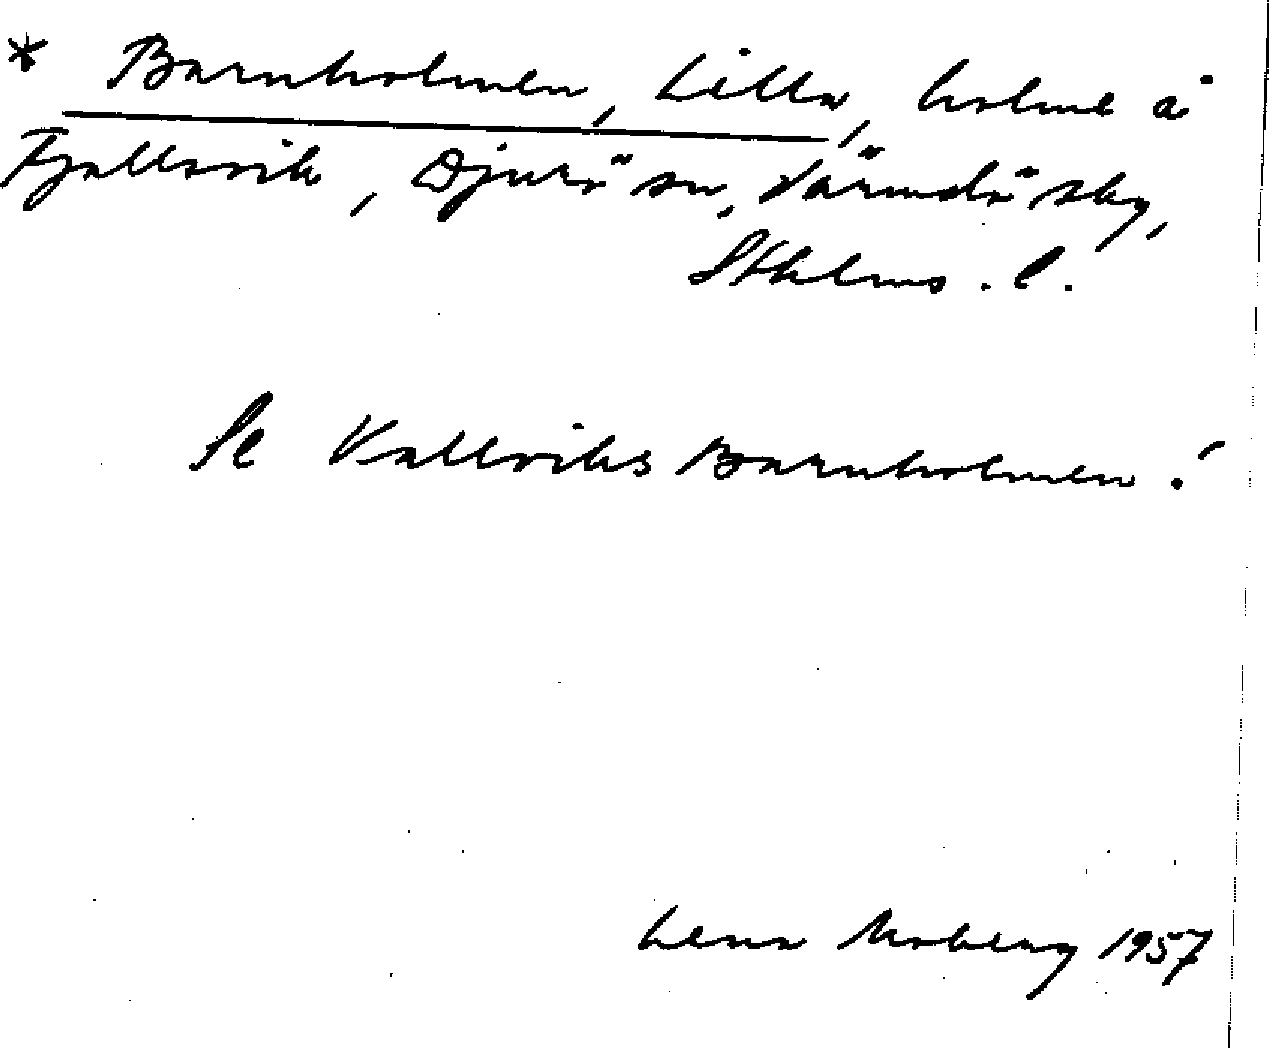 * Barnholmen, Lilla, holme å
Fjällsvik, Djurö sn, Värmdö skg,
Sthlms. l.
Se Vallviks Barnholmen!
Lena Moberg 1957